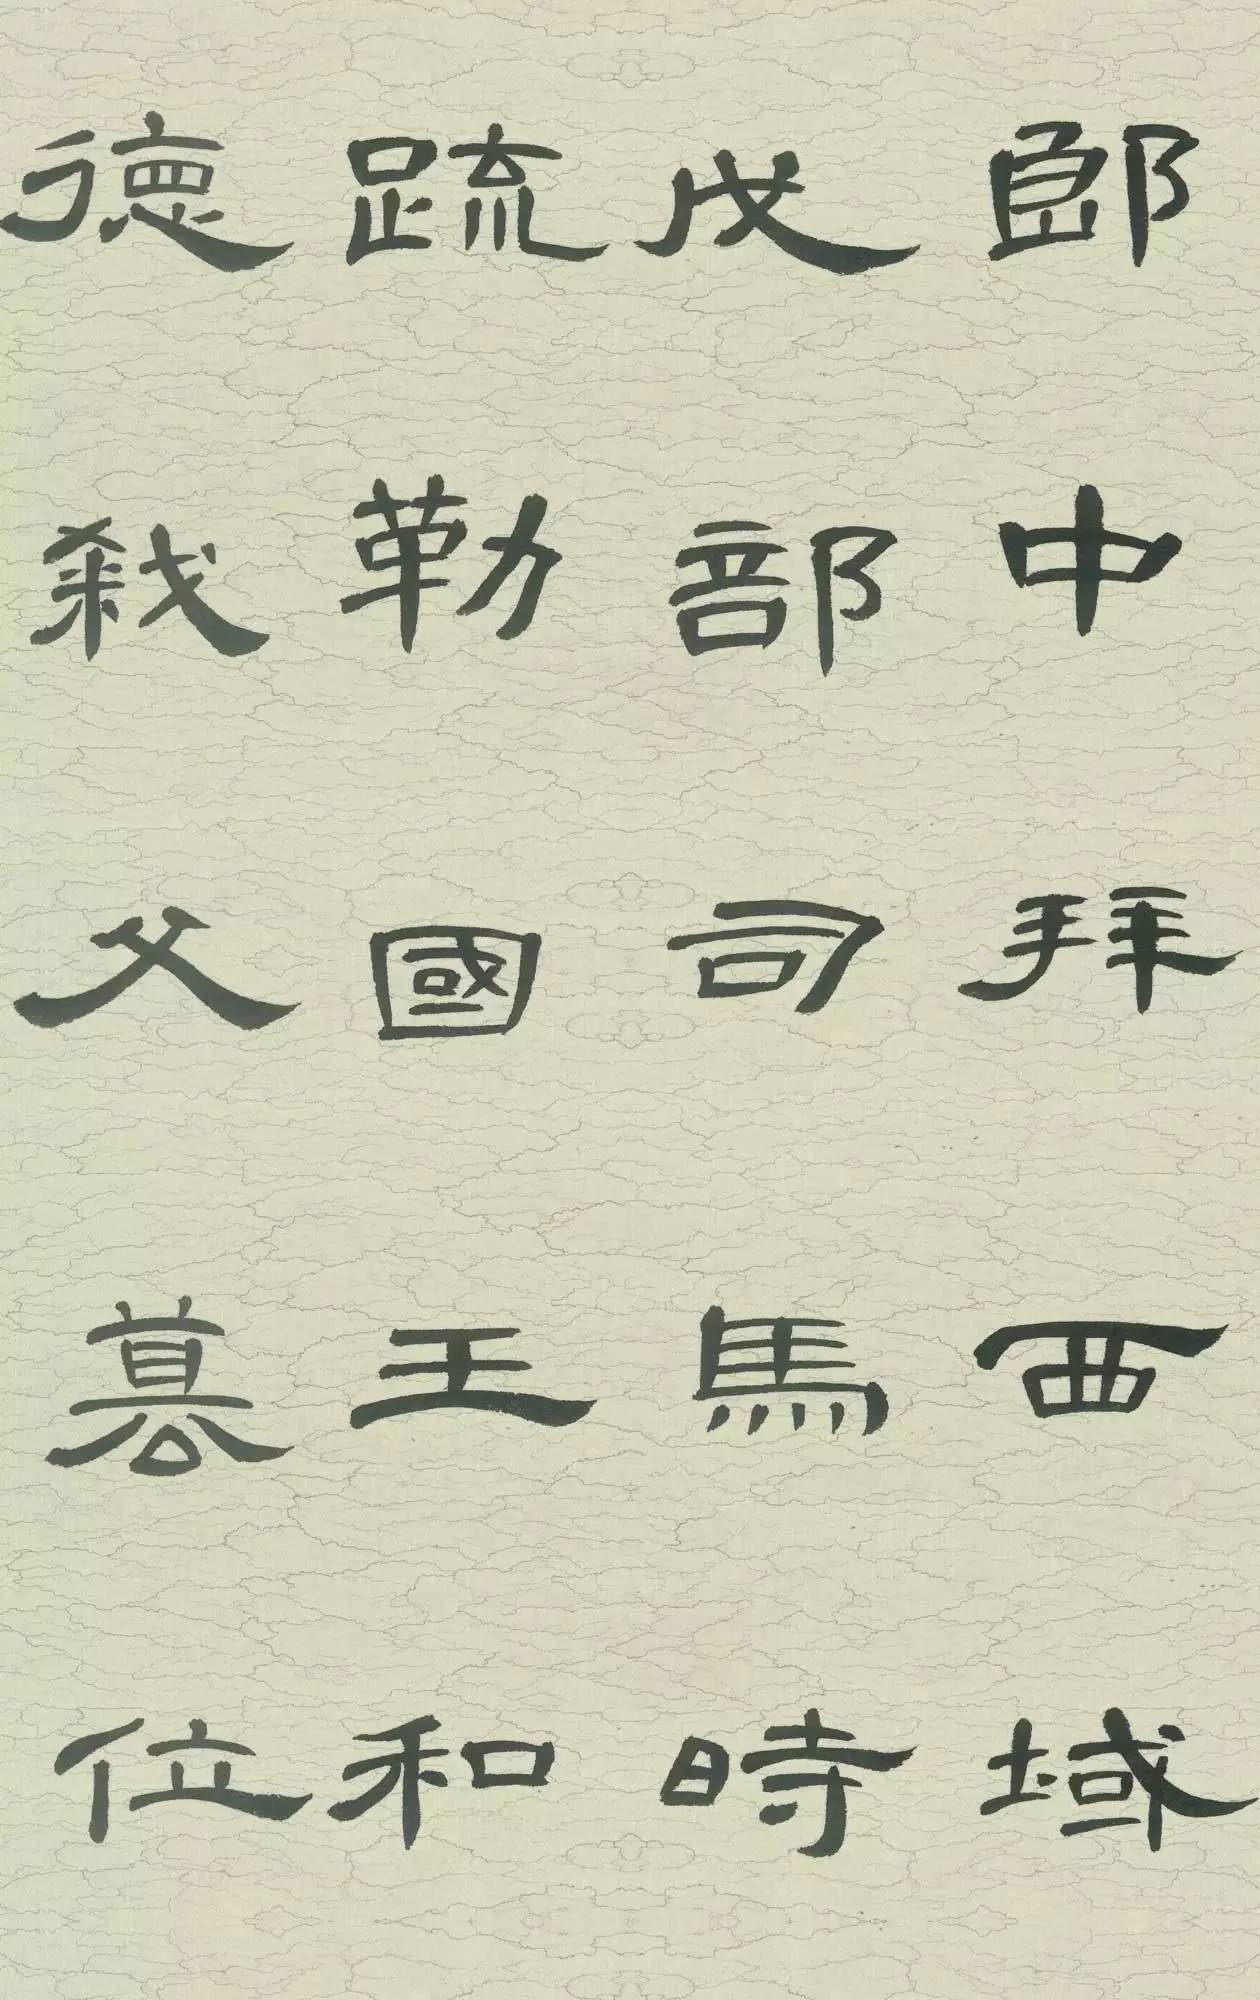 郎中拜西域
戊部司馬時
疏勒國王和
德弒父篡位